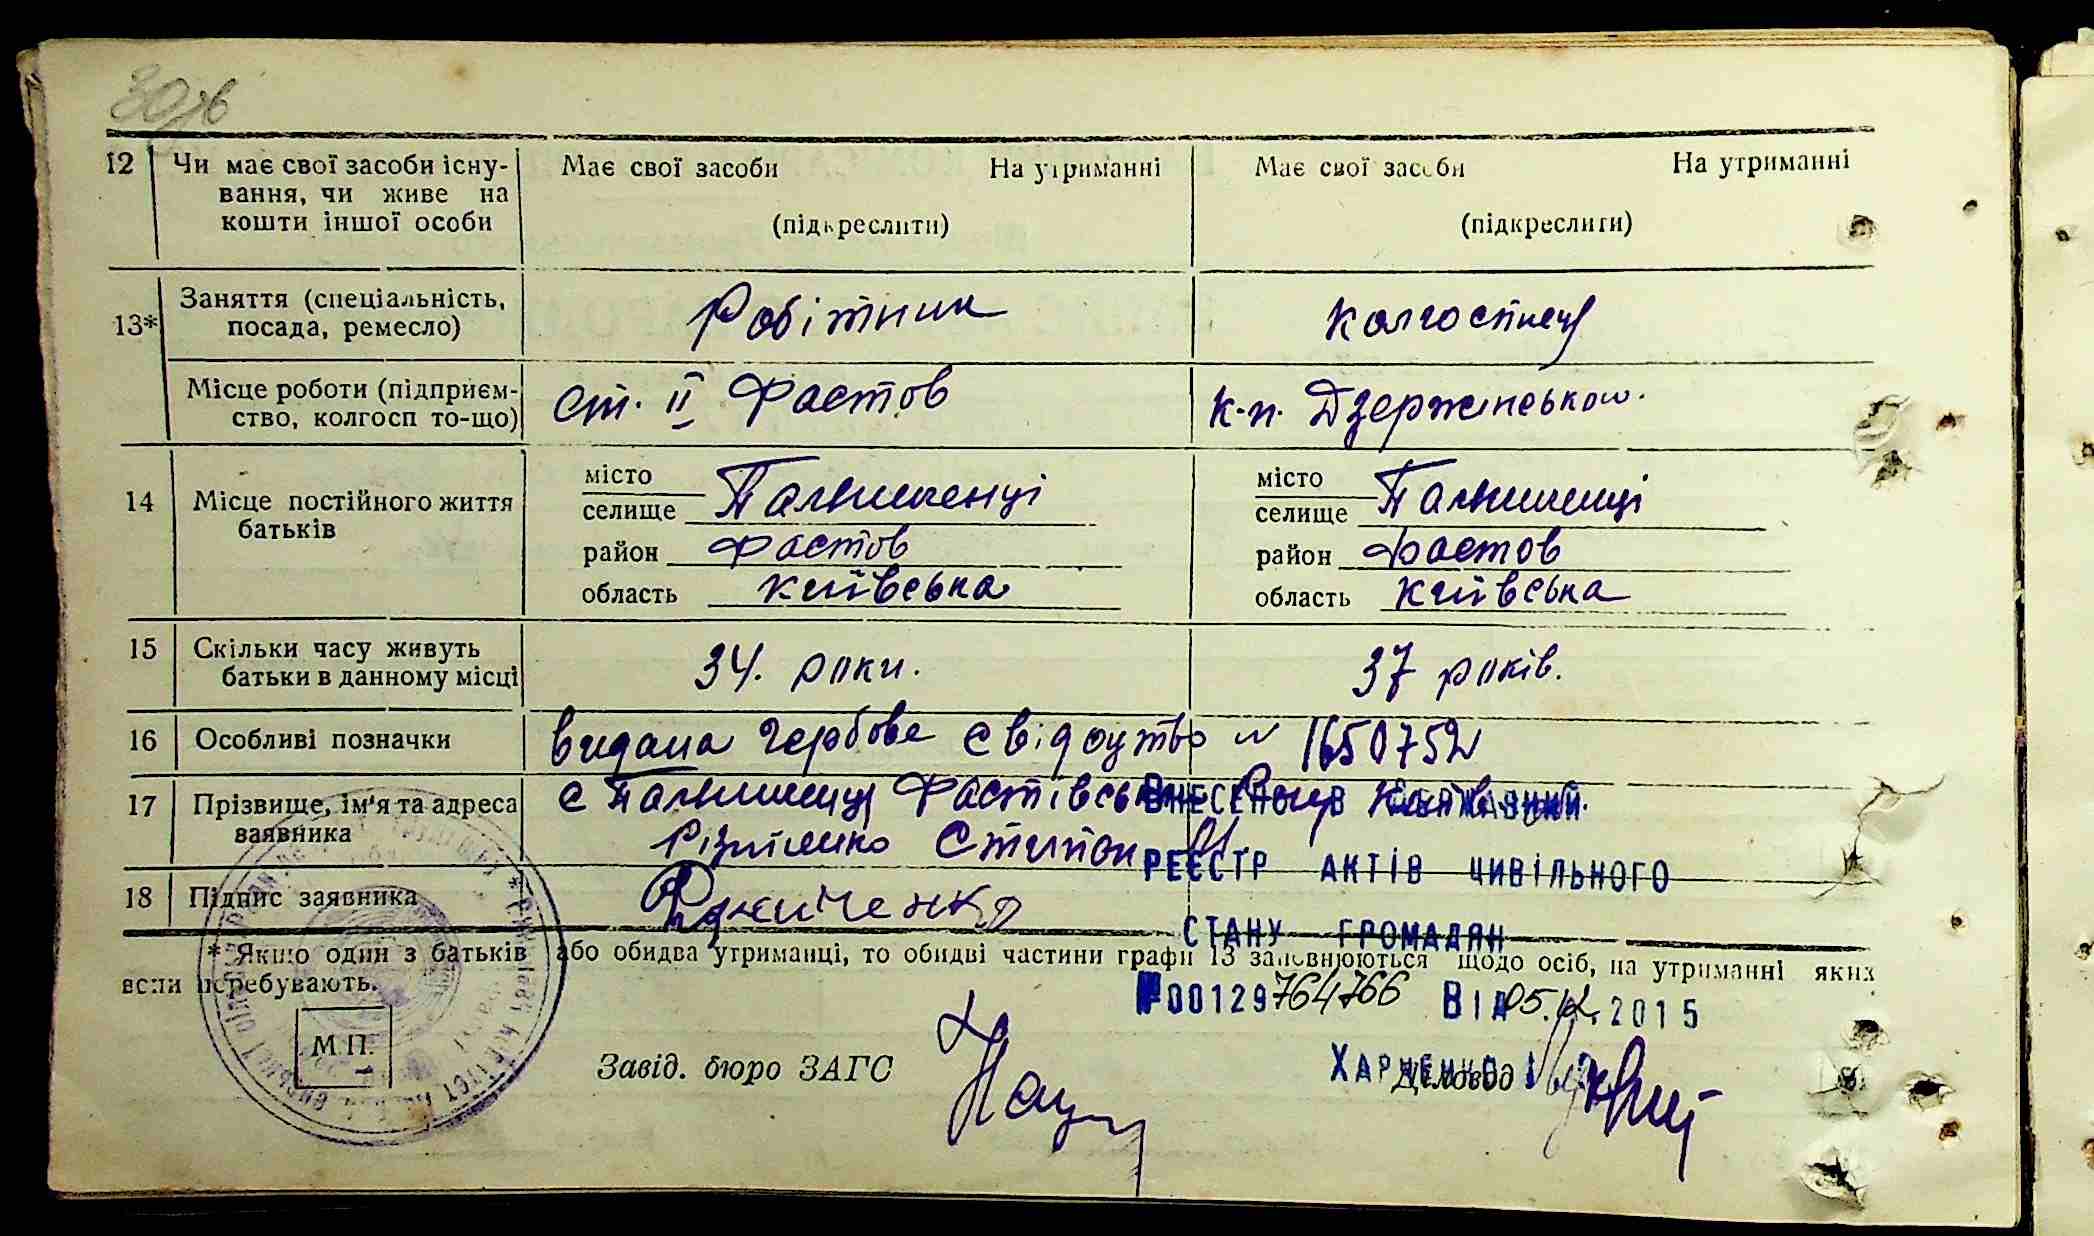 30 зв
12 Чи має свої засоби існу- Має свої засоби На утриманні Має свої засоби На утриманні
вання, чи живе на
кошти іншої особи (підкреслити) (підкреслити)
13* Заняття (спеціальність, Робітник Колгоспниця
посада, ремесло)
Місце роботи (підприєм- ст. II Фастов к-п. Дзержинсько
ство, колгосп то-що)
14 Місце постійного життя місто Палишенці місто Палишенці
батьків селище селище
район Фастов район Фастов
область Київська область Київська
15 Скільки часу живуть 34. роки. 37 років.
батьки в данному місці
16 Особливі позначки видана гербове свідоцтво N 1650752
17 Прізвище, ім'я та адреса с Палишенці Фастівськ
заявника Степан
18 Підпис заявника
ВНЕСЕНО В ДЕРЖАВНИЙ
РЕЄСТР АКТІВ ЦИВІЛЬНОГО
СТАНУ ГРОМАДЯН
* Якщо один з батьків або обидва утриманці, то обидві частини графи 13 заповнюються щодо осіб, на утриманні яких
вони перебувають.
№00129764766 ВІД 05.12.2015
М.П. Завід. бюро ЗАГС ХАРЧЕНКО І Діловод